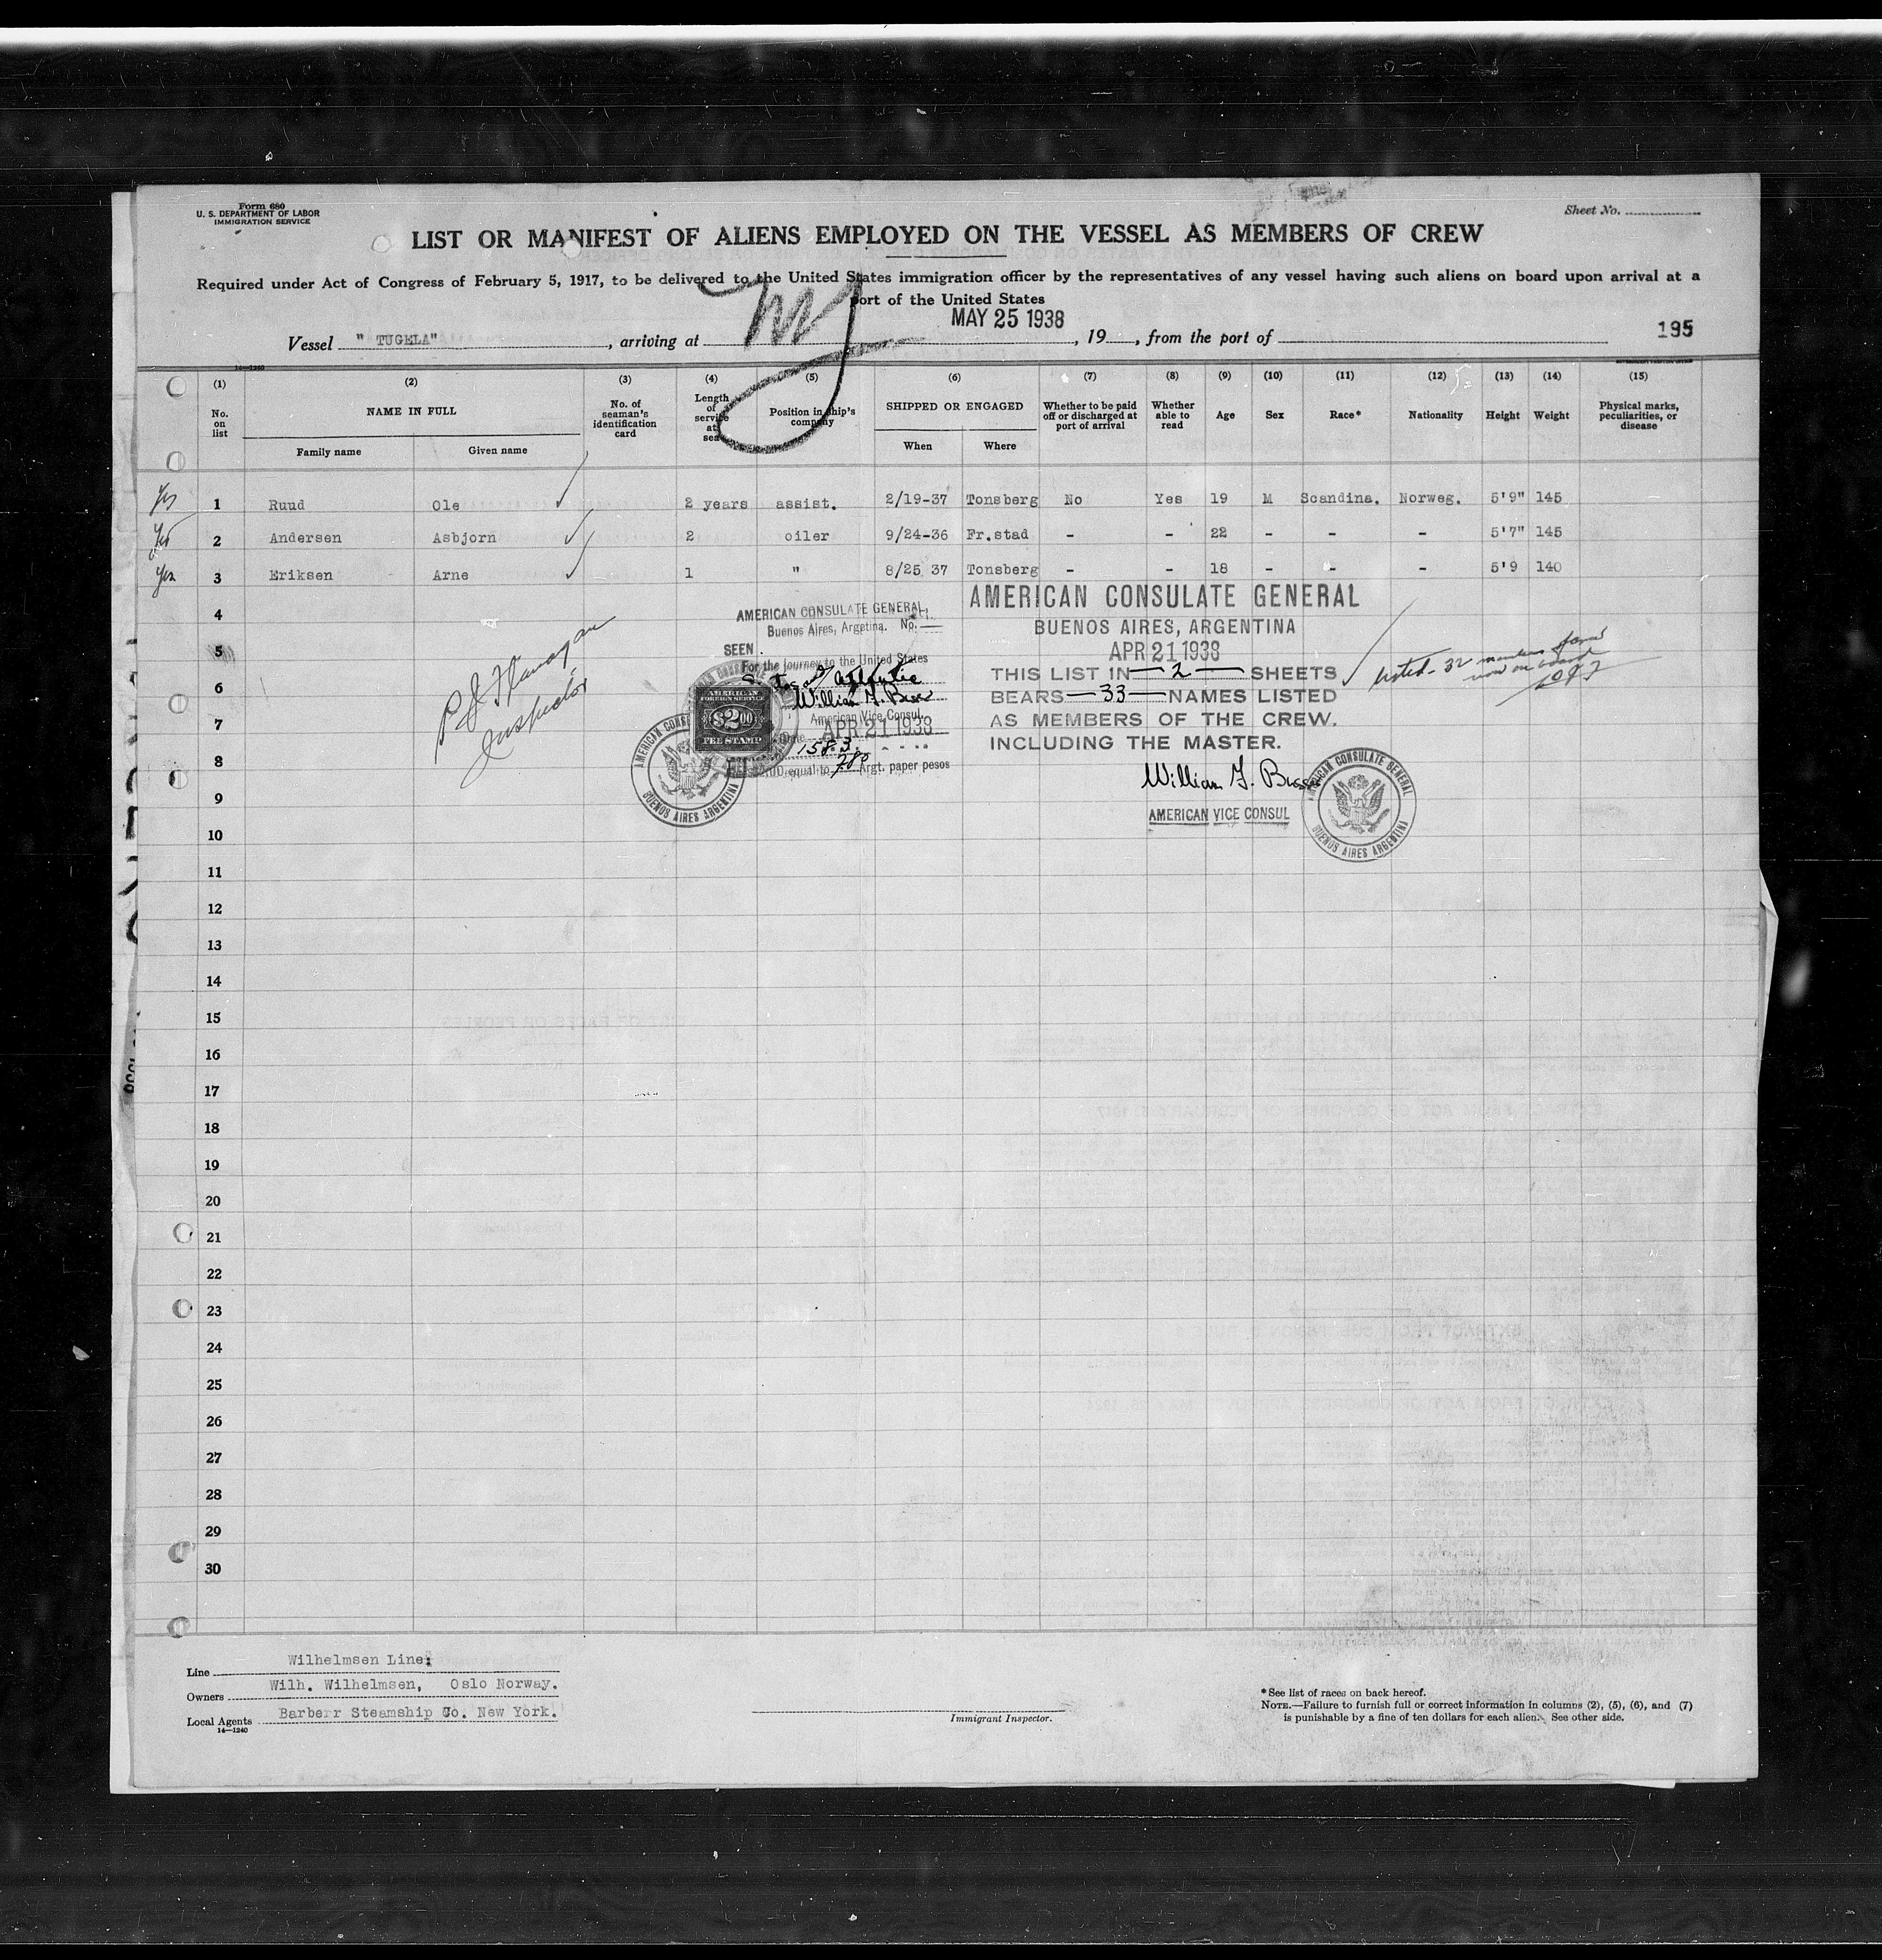 Form 680
U. S. DEPARTMENT OF LABOR
IMMIGRATION SERVICE
Sheet No.
LIST OR MANIFEST OF ALIENS EMPLOYED ON THE VESSEL AS MEMBERS OF CREW
Required under Act of Congress of February 5, 1917, to be delivered to the United States immigration officer by the representatives of any vessel having such aliens on board upon arrival at a
port of the United States
MAY 25 1938
195
Vessel " TUGELA" , arriving at NY , 19 , from the port of
14—1240
(1) (2) (3) (4) (5) (6) (7) (8) (9) (10) (11) (12) (13) (14) (15)
No. on list NAME IN FULL Family name Given name No. of seaman's identification card Length of service at sea Position in ship's company SHIPPED OR ENGAGED When Where Whether to be paid off or discharged at port of arrival Whether able to read Age Sex Race* Nationality Height Weight Physical marks, peculiarities, or disease
Yes 1 Ruud Ole 2 years assist. 2/19-37 Tonsberg No Yes 19 M Scandina. Norweg. 5'9" 145
Yes 2 Andersen Asbjorn 2 oiler 9/24-36 Fr.stad - - 22 - - - 5'7" 145
Yes 3 Eriksen Arne 1 " 8/25 37 Tonsberg - - 18 - - - 5'9 140
4
5
6
7
8
9
10
11
12
13
14
15
16
17
18
19
20
21
22
23
24
25
26
27
28
29
30
P J Flanagan
Inspector
AMERICAN CONSULATE GENERAL,
Buenos Aires, Argetina. No.
SEEN
For the journey to the United States
William
American Vice Consul.
Date APR 21 1938
1583
equal to Argt. paper pesos
AMERICAN
FOREIGN SERVICE
$2.00
FEE STAMP
AMERICAN CONSULATE GENERAL
BUENOS AIRES ARGENTINA
AMERICAN CONSULATE GENERAL
BUENOS AIRES, ARGENTINA
APR 21 1938
THIS LIST IN 2 SHEETS
BEARS 33 NAMES LISTED
AS MEMBERS OF THE CREW.
INCLUDING THE MASTER.
William
AMERICAN VICE CONSUL
AMERICAN CONSULATE GENERAL
BUENOS AIRES ARGENTINA
listed - 32 members
now on board
Line Wilhelmsen Line:
Owners Wilh. Wilhelmsen, Oslo Norway.
Local Agents Barberr Steamship Co. New York.
14—1240
Immigrant Inspector.
*See list of races on back hereof.
NOTE.—Failure to furnish full or correct information in columns (2), (5), (6), and (7)
is punishable by a fine of ten dollars for each alien. See other side.